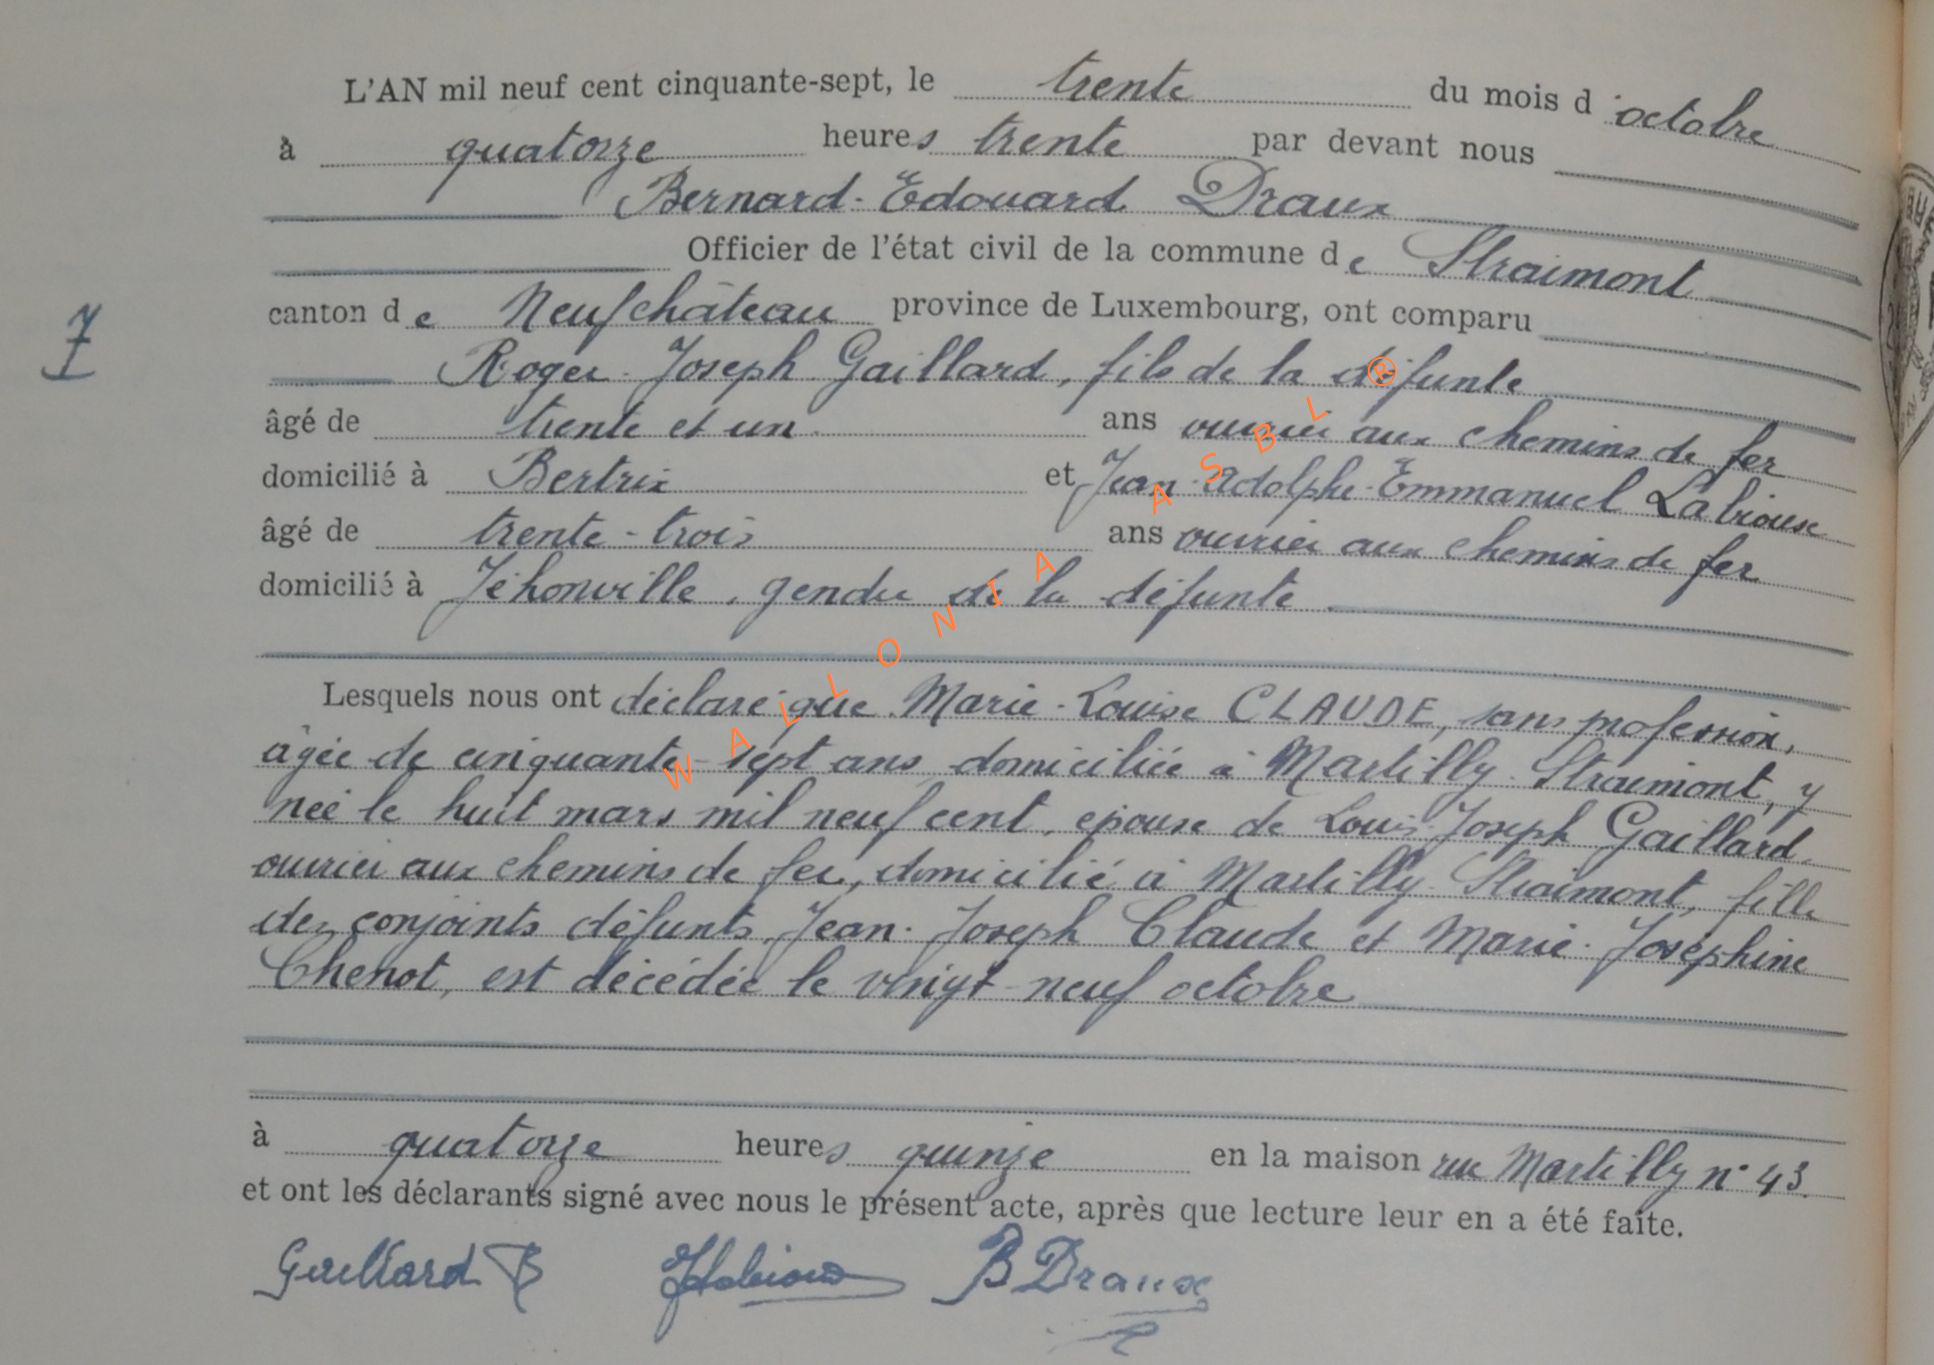 L'AN mil neuf cent cinquante-sept, le trente du mois d'octobre
à quatorze heures trente par devant nous
Bernard-Edouard Draux
Officier de l'état civil de la commune de Straimont
7
canton de Neufchâteau province de Luxembourg, ont comparu
Roger-Joseph Gaillard, fils de la défunte
âgé de trente et un ans ouvrier aux chemins de fer
domicilié à Bertrix et Jean-Adolphe-Emmanuel Labiouse
âgé de trente-trois ans ouvrier aux chemins de fer
domicilié à Jéhonville, gendre de la défunte.
Lesquels nous ont déclaré que Marie-Louise CLAUDE, sans profession,
âgée de cinquante-sept ans domiciliée à Martilly-Straimont, y
née le huit mars mil neuf cent, épouse de Louis-Joseph Gaillard,
ouvrier aux chemins de fer, domicilié à Martilly-Straimont, fille
des conjoints défunts Jean-Joseph Claude et Marie-Joséphine
Chenot, est décédée le vingt-neuf octobre
à quatorze heures quinze en la maison rue Martilly n° 43.
et ont les déclarants signé avec nous le présent acte, après que lecture leur en a été faite.
Gaillard R JLabiouse B Draux
WALLONIA ASBL ®